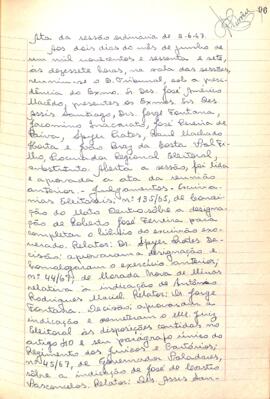 96
Ata da sessão ordinária de 2-6-67
Aos dois dias do mês de junho de
um mil novecentos e sessenta e sete,
às dezessete horas, na sala das sessões,
reuniu-se o E. Tribunal, sob a presi-
dência do Exmo. Sr. Des. José Américo
Macêdo, presentes os Exmos. Srs. Des.
Assis Santiago, Drs. Jorge Fontana,
José Pereira de
Paiva, Raul Machado
Horta e João Braz da Costa Val Fi-
lho, Procurador Regional Eleitoral,
substituto. Aberta a sessão, foi lida
e aprovada a ata da reunião
anterior. - Julgamentos. - Escriva-
nias Eleitorais; nº 135/65, de Conceição
do Mato Dentro, sôbre a designa-
ção de Roberto José Ferreira para
completar o biênio do escrivão exo-
nerado. Relator: Dr.
Decisão: aprovaram a designação e
homologaram o exercício anterior;
nº 44/67, de Morada Nova de Minas
relativa à indicação de Antônio
Rodrigues Maciel. Relator: Dr. Jorge
Fontana. Decisão: aprovaram a
indicação e remeteram o MM. Juiz
Eleitoral às disposições contidas no
artigo 10 e seu parágrafo único do
Regimento dos Juízos e Cartórios;
nº 45/67, de Governador Valadares,
sôbre a indicação de José de Castro
Vasconcelos. Relator: Des. Assis San-